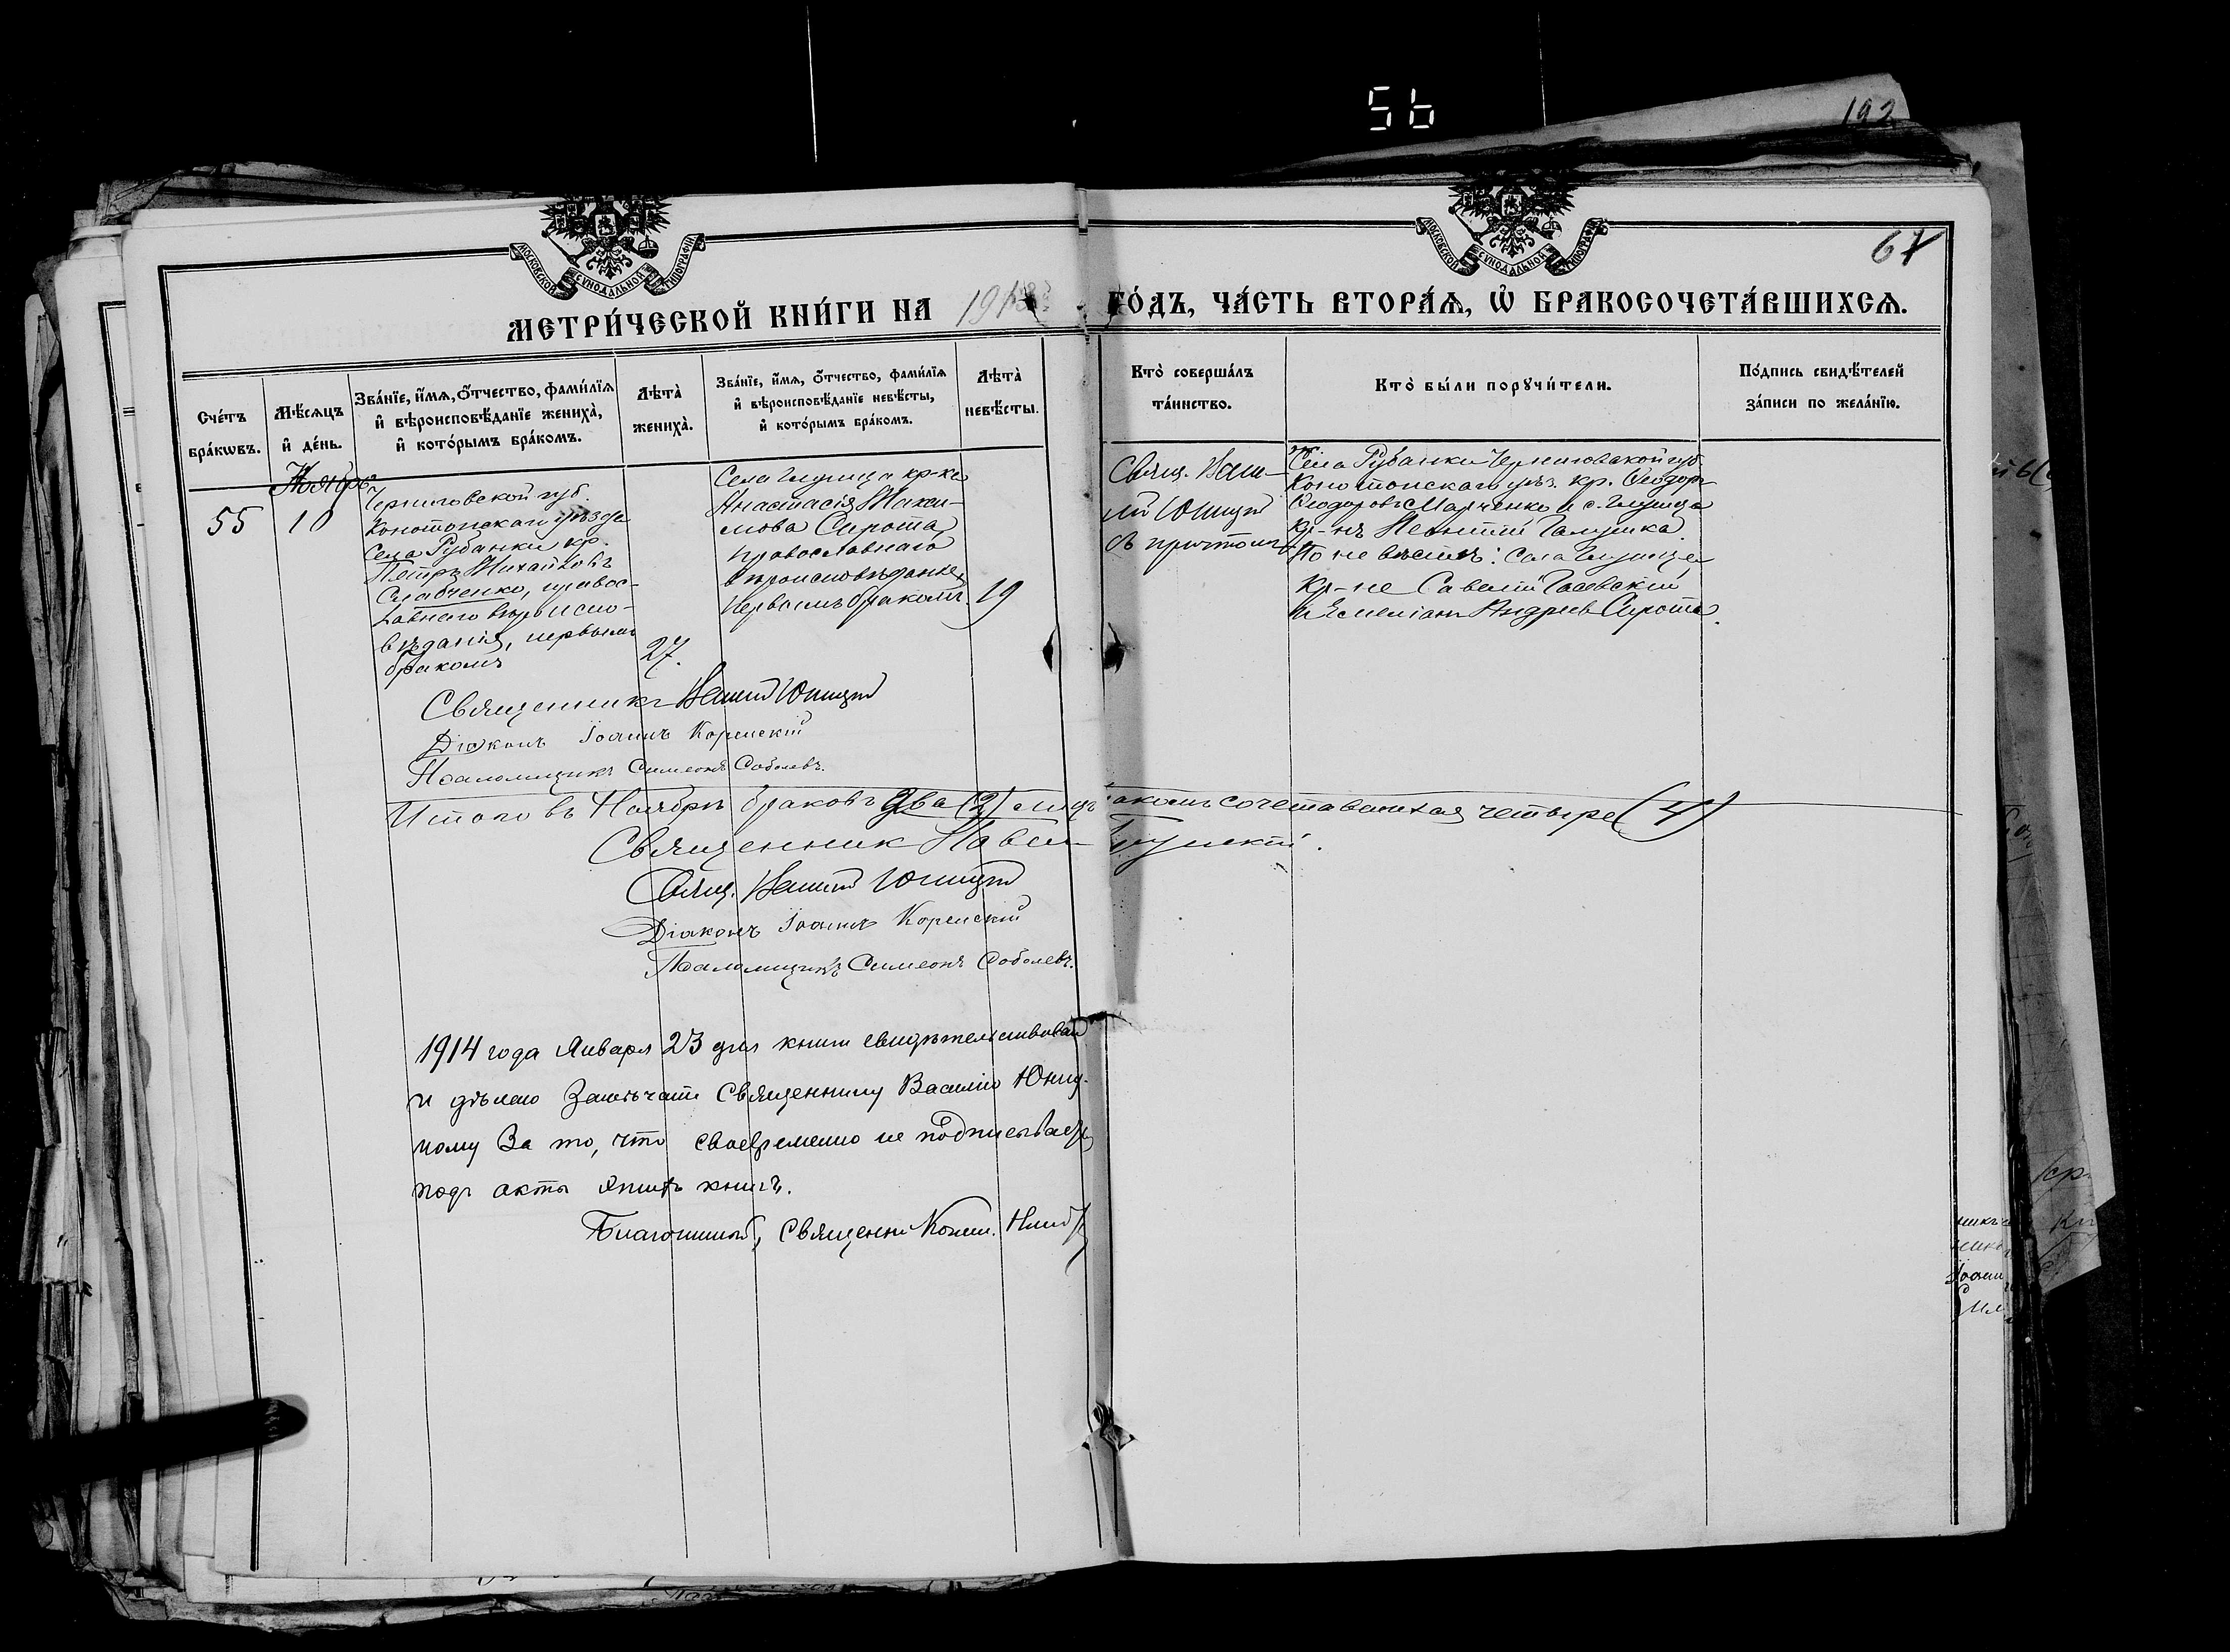 56
192
67
МОСКОВСКОЙ СѴНОДАЛЬНОЙ ТИПОГРАФІИ
МОСКОВСКОЙ СѴНОДАЛЬНОЙ ТИПОГРАФІИ
МЕТРИ́ЧЕСКОЙ КНИ́ГИ НА 191 ГО́ДЪ, ЧА́СТЬ ВТОРА́Ѧ, Ѡ҆ БРАКОСОЧЕТА́ВШИХСѦ.
Сче́тъ бра́кѡвъ.
Мѣ́сѧцъ и҆ де́нь.
Зва́нїе, и҆́мѧ, ѻ҆́тчество, фами́лїѧ и҆ вѣроисповѣ́данїе жениха̀, и҆ кото́рымъ бра́комъ.
Лѣта̀ жениха̀.
Зва́нїе, и҆́мѧ, ѻ҆́тчество, фами́лїѧ и҆ вѣроисповѣ́данїе невѣ́сты, и҆ кото́рымъ бра́комъ.
Лѣта̀ невѣ́сты.
Кто̀ соверша́лъ та́инство.
Кто̀ бы́ли порꙋчи́тели.
По́дпись свидѣ́телей за́писи по жела́нїю.
Ноябрь
55
10
Черниговской губ.
Конотопскаго уѣзда
села Рубанки кр.
Петръ Михайловъ
Слабченко, правос-
лавнаго вѣроиспо-
вѣданія, первымъ
бракомъ
27.
Села кр-ка
Анастасія Макси-
мова Сирота,
православнаго
вѣроисповѣданія,
первымъ бракомъ.
19
Свящ. Васи-
лій Юницкій
съ причтомъ
Села Рубанки Черниговской губ.
Конотопскаго уѣз. кр. Ѳеодоръ
Ѳеодоровъ Марченко и с.
кр-нъ Леонтій Галушка.
По невѣстѣ: села
кр-не Савелій
и Емеліанъ Андреевъ Сирота.
Священникъ Василій Юницкій
Діаконъ Іоаннъ Коренскій
Псаломщикъ Симеонъ Соболевъ.
Итого въ Ноябрѣ браковъ два (2) лицъ бракомъ сочетавшихся четыре (4)
Священник Павел
Свящ. Василій Юницкій
Діаконъ Іоаннъ Коренскій
Псаломщикъ Симеонъ Соболевъ.
1914 года Января 23 дня книги свидѣтельствовал
и дѣлаю замѣчаніе Священнику Василію Юниц-
кому за то, что своевременно не подписывается
подъ акты книгъ.
Благочинный, Священник